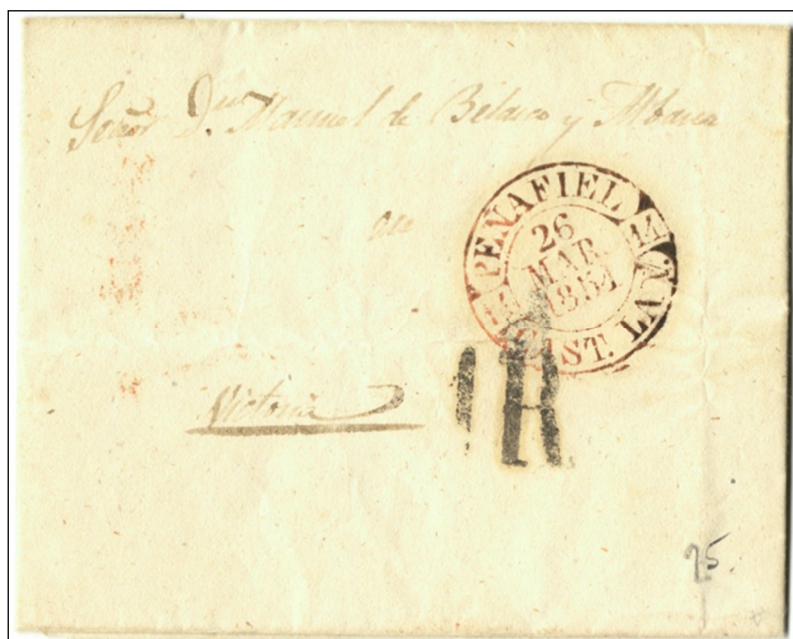 Señor Dn Manuel de Velasco y
en
PEÑAFIEL
26
MAR
1854
CAST. LA V.
1R
Victoria
25